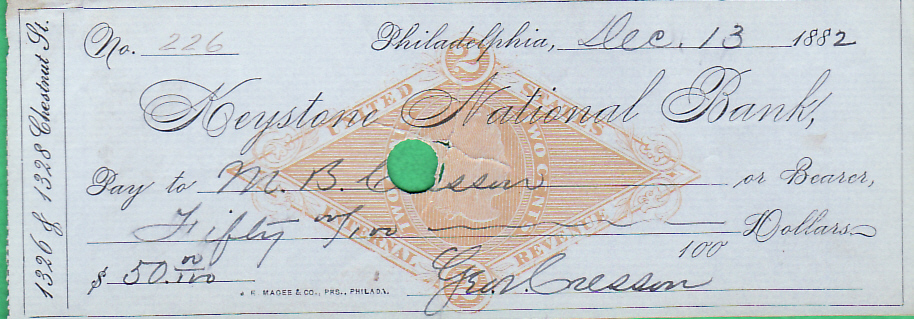 1326 & 1328 Chestnut St.
No. 226 Philadelphia, Dec. 13 1882
Keystone National Bank,
Pay to M. B. Cresson or Bearer,
Fifty 00/100 Dollars
100
$ 50.00/100 Geo. V. Cresson
MAGEE & CO., PRS., PHILADA.
2
UNITED STATES
TWO CENTS
INTERNAL REVENUE
2